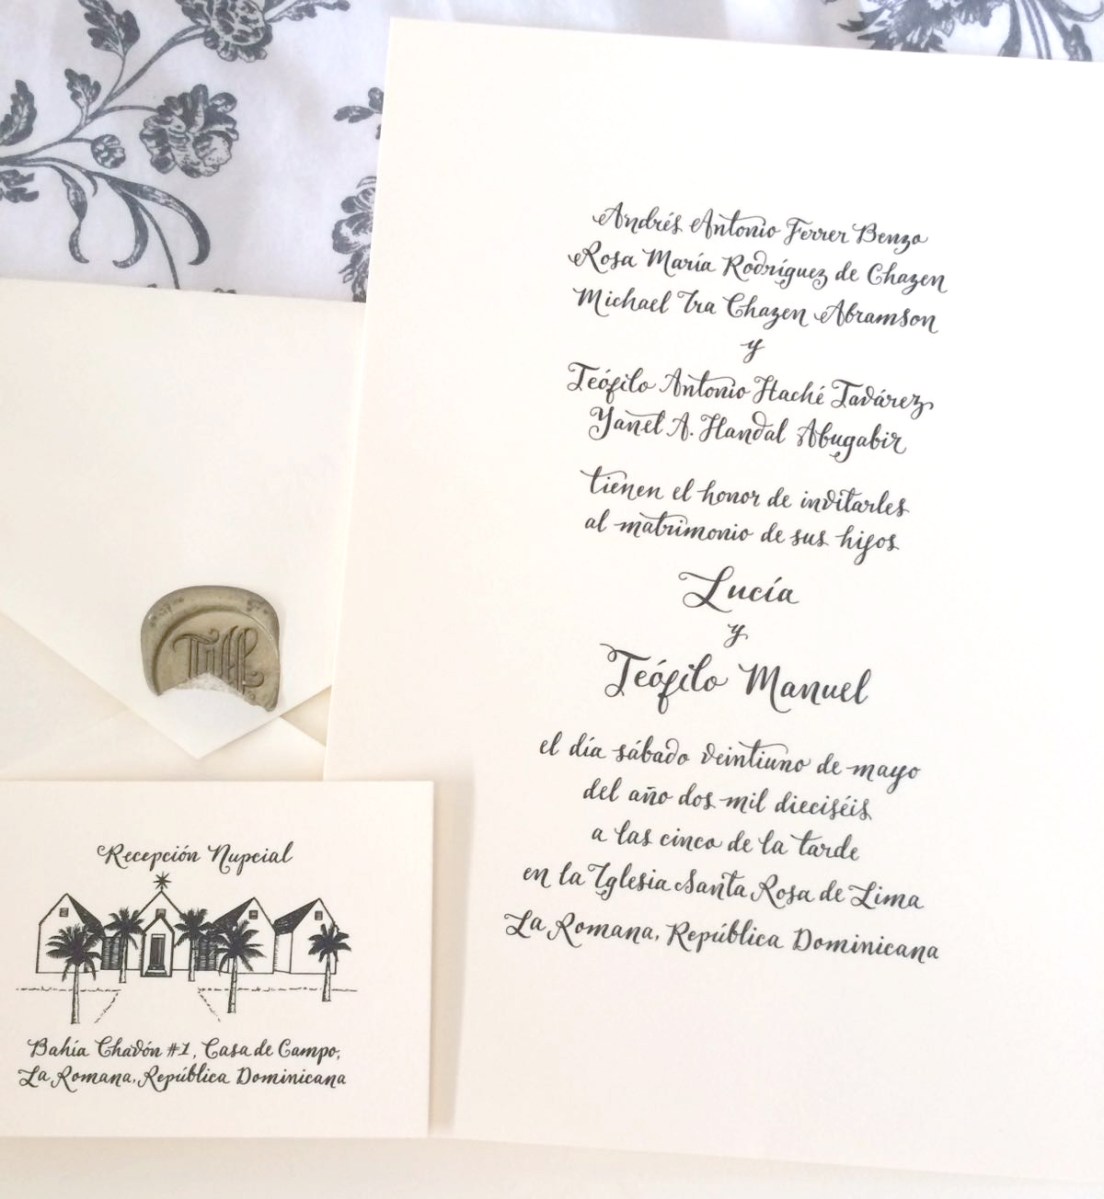 Andrés Antonio Ferrer Benzo
Rosa María Rodríguez de Chazen
Michael Ira Chazen Abramson
y
Teófilo Antonio Haché Tavárez
Yanel A. Handal Abugabir
tienen el honor de invitarles
al matrimonio de sus hijos
Lucía
y
Teófilo Manuel
el día sábado veintiuno de mayo
del año dos mil dieciséis
a las cinco de la tarde
en la Iglesia Santa Rosa de Lima
La Romana, República Dominicana
Recepción Nupcial
Bahía Chavón #1, Casa de Campo,
La Romana, República Dominicana